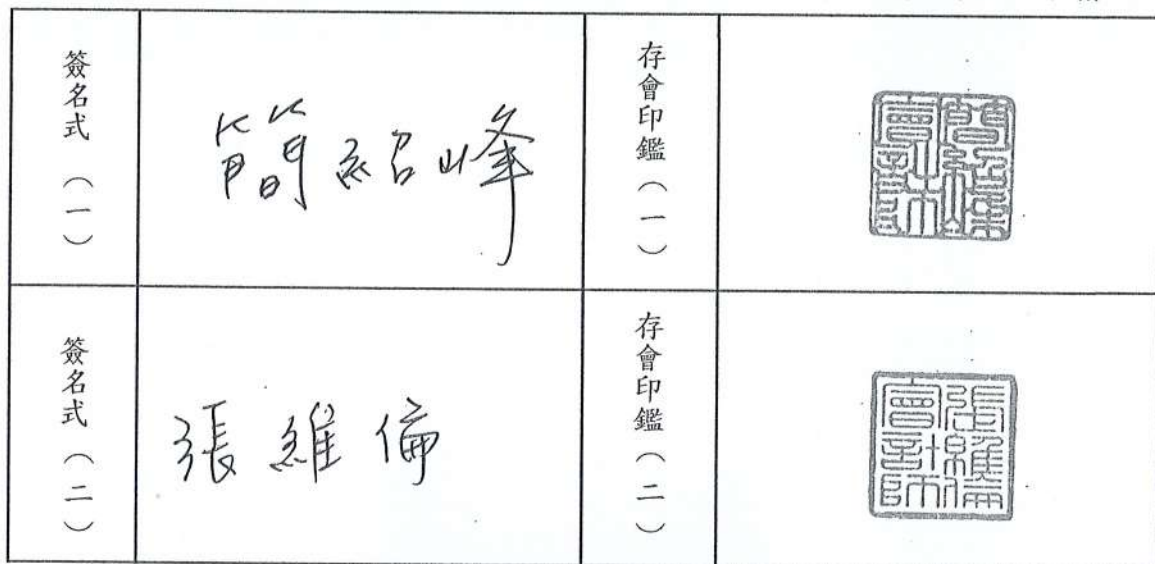 簽名式（一）
簡紹峰
存會印鑑（一）
簡紹鋒會計師
簽名式（二）
張維倫
存會印鑑（二）
張維倫會計師